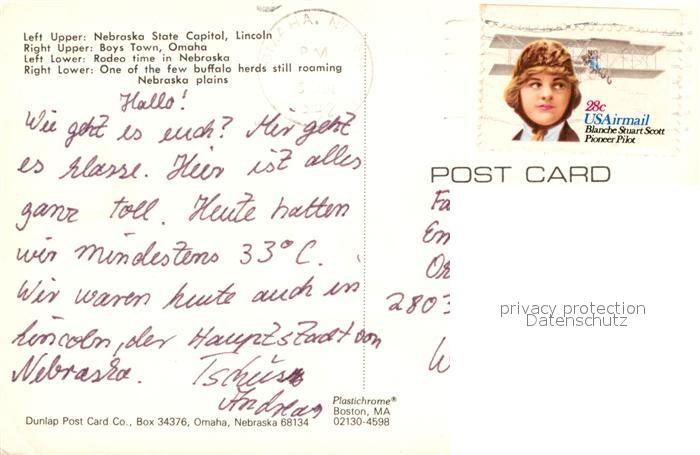 Left Upper: Nebraska State Capitol, Lincoln
Right Upper: Boys Town, Omaha
Left Lower: Rodeo time in Nebraska
Right Lower: One of the few buffalo herds still roaming
Nebraska plains
Hallo!
Wie geht es euch? Mir geht
es klasse. Hier ist alles
ganz toll. Heute hatten
wir mindestens 33°C.
Wir waren heute auch in
Lincoln, der Hauptstadt von
Nebraska. Tschüss
Andreas
Dunlap Post Card Co., Box 34376, Omaha, Nebraska 68134
Plastichrome®
Boston, MA
02130-4598
OMAHA, N
PM
28c
USAirmail
Blanche Stuart Scott
Pioneer Pilot
POST CARD
2803
privacy protection
Datenschutz